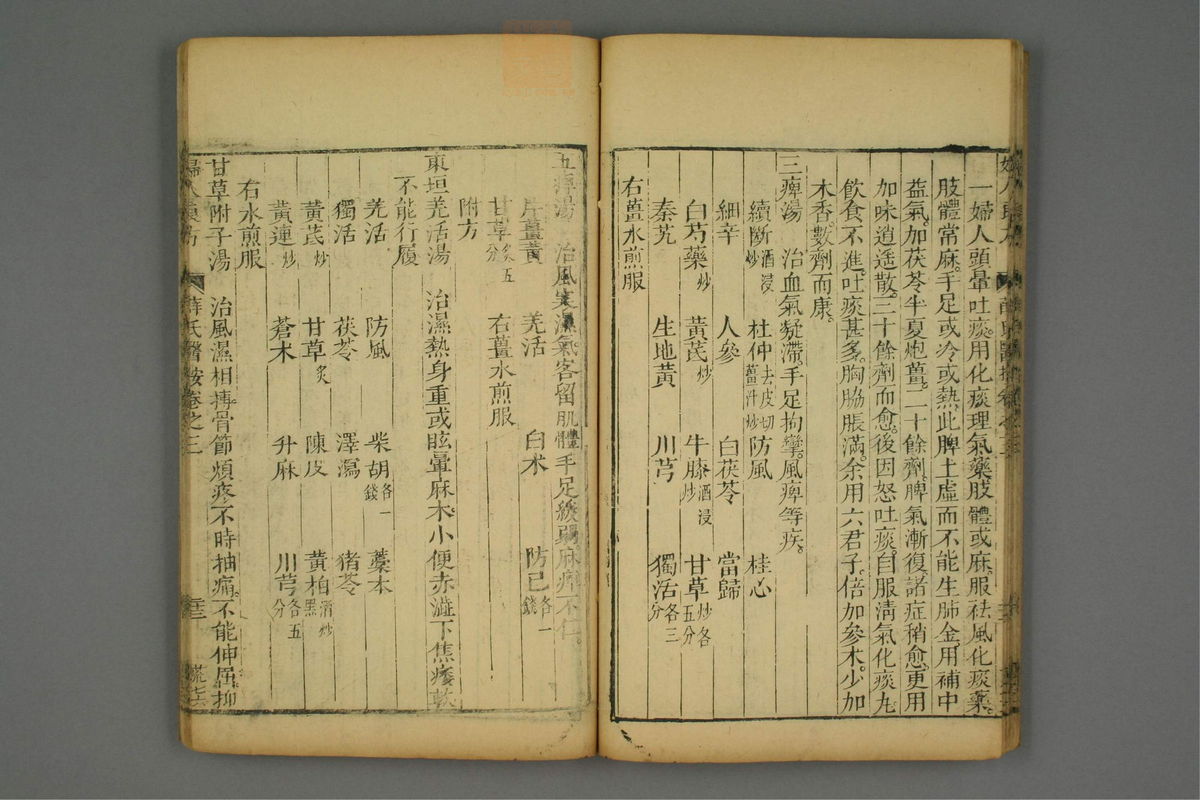 一婦人頭暈吐痰用化痰理氣藥肢體或麻服祛風化痰藥
肢體常麻手足或冷或熱此脾土虛而不能生肺金用補中
益氣加茯苓半夏炮薑二十餘劑脾氣漸復諸症稍愈更用
加味逍遙散三十餘劑而愈後因怒吐痰自服清氣化痰丸
飲食不進吐痰甚多胸脇脹滿余用六君子倍加參朮少加
木香數劑而康
三痺湯 治血氣凝滯手足拘攣風痺等疾
續斷酒浸炒 杜仲去皮切薑汁炒 防風 桂心
細辛 人參 白茯苓 當歸
白芍藥炒 黃芪炒 牛膝酒浸炒 甘草炒各五分
秦艽 生地黃 川芎 獨活各三分
右薑水煎服
五痺湯 治風寒濕氣客留肌體手足緩弱麻痺不仁
片薑黃 羌活 白术 防己各一錢
甘草炙五分 右薑水煎服
附方
東垣羌活湯 治濕熱身重或眩暈麻木小便赤澁下焦痿軟
不能行履
羌活 防風 柴胡各一錢 藁本
獨活 茯苓 澤瀉 猪苓
黃芪炒 甘草炙 陳皮 黃柏酒炒黑
黃連炒 蒼木 升麻 川芎各五分
右水煎服
甘草附子湯 治風濕相摶骨節煩疼不時抽痛不能伸屈抑
婦人良方 薛氏醫按卷之三